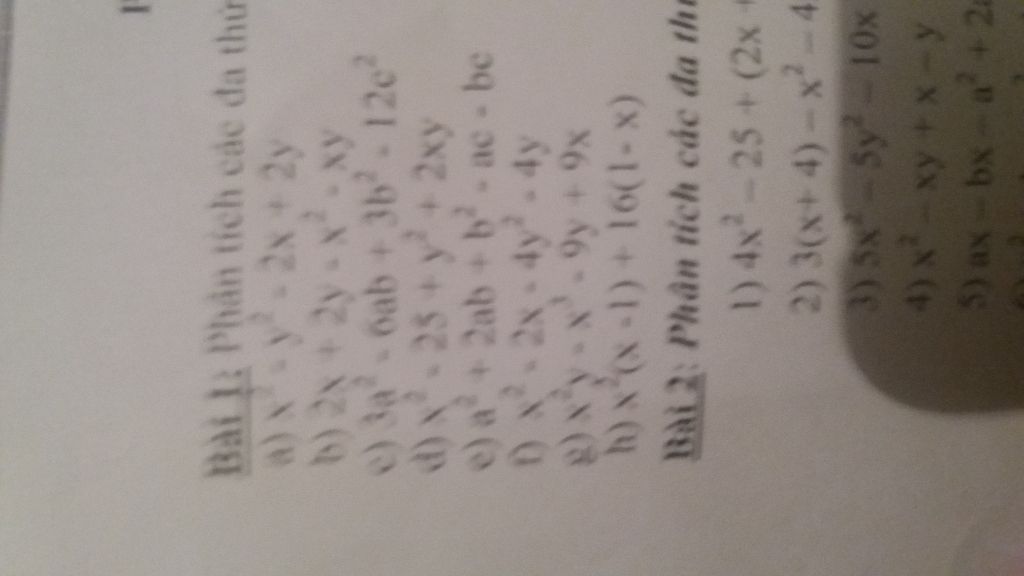 Bài 1: Phân tích các đa thứ
a) x² - y² - 2x + 2y
b) 2x + 2y - x² - xy
c) 3a² - 6ab + 3b² - 12c²
d) x² - 25 + y² + 2xy
e) a² + 2ab + b² - ac - bc
f) x² - 2x - 4y² - 4y
g) x²y - x³ - 9y + 9x
h) x²(x -1) + 16(1- x)
Bài 2: Phân tích các đa thứ
1) 4x² – 25 + (2x +
2) 3(x+ 4) – x² – 4
3) 5x² – 5y² – 10x
4) x² – xy + x – y
5) ax – bx – a² + 2a